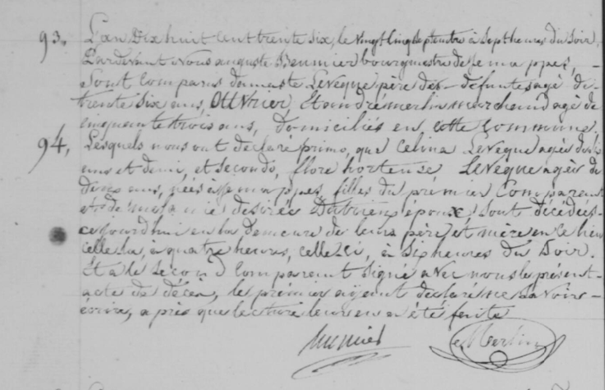 93. L'an Dix huit cent trente six, le vingt cinq septembre à Sept heures du Soir,
Pardevant Nous auguste bourgmestre de Jemappes,
Sont Comparus Levêque père des défuntes agé de
trente Six ans, Ouvrier, Et andré merlin marchand agé de
cinquante trois ans, domiciliés en cette Commune.
94. Lesquels nous ont déclaré primo, que Celina Levêque agée
ans et demi, et Secondo, flore hortense Levêque agée de
ans, nées à Jemappes, filles du premier Comparant
et de désirée époux, sont décédées
cejourd'hui en la demeure de leurs père et mère en ce lieu
celle là, à quatre heures, celle ci, à Six heures du Soir.
Et a le Second Comparant Signé avec nous le présent
acte de décès, le premier ayant déclaré ne Savoir
écrire, après que lecture leur en a été faite
Merlin